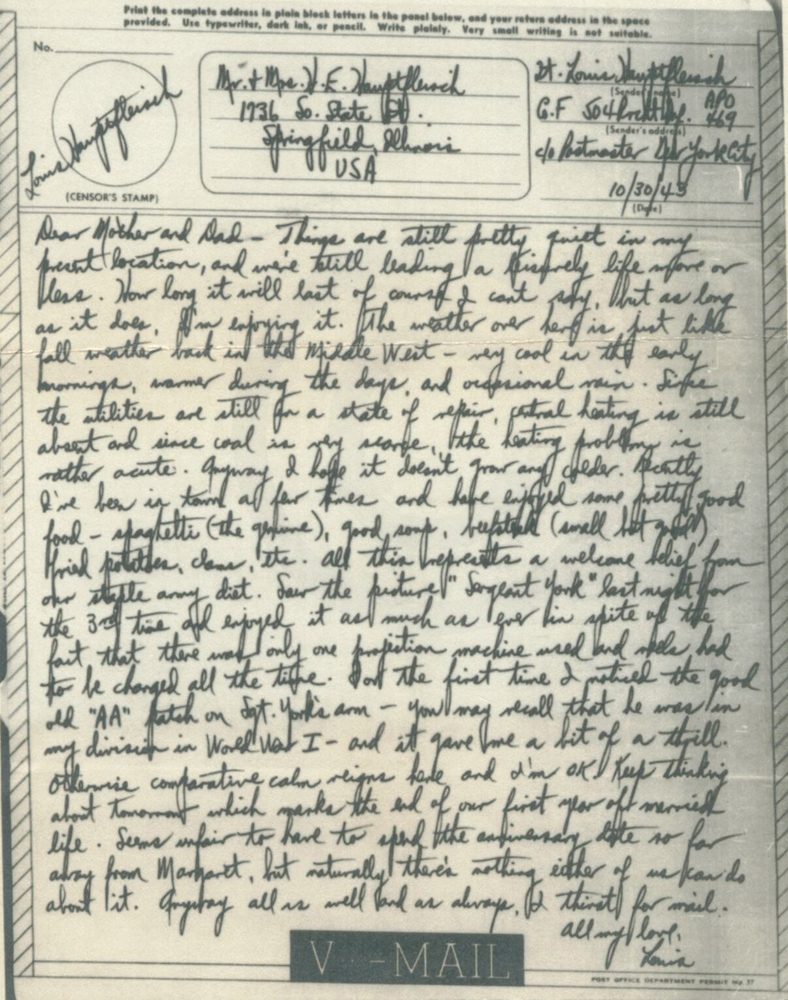 Print the complete address in plain block letters in the panel below, and your return address in the space
provided. Use typewriter, dark ink, or pencil. Write plainly. Very small writing is not suitable.
No.
Mr. & Mrs. H. E. Hauptfleisch
1736 So. State St.
Springfield, Illinois
USA
Lt. Louis Hauptfleisch
(Sender's name)
Co. F 504 Prcht Inf. APO 469
(Sender's address)
c/o Postmaster New York City
10/30/43
(Date)
Louis Hauptfleisch
(CENSOR'S STAMP)
Dear Mother and Dad – Things are still pretty quiet in my
present location, and we're still leading a leisurely life more or
less. How long it will last of course I cant say, but as long
as it does, I'm enjoying it. The weather over here is just like
fall weather back in the Middle West – very cool in the early
mornings, warmer during the days, and occasional rain. Since
the utilities are still in a state of repair, central heating is still
absent and since coal is very scarce, the heating problem is
rather acute. Anyway I hope it doesn't grow any colder. Recently
I've been in town a few times and have enjoyed some pretty good
food – spaghetti (the genuine), good soup, beefsteak (small but good)
fried potatoes, clams, etc. All this represents a welcome relief from
our staple army diet. Saw the picture "Sergeant York" last night for
the 3rd time and enjoyed it as much as ever in spite of the
fact that there was only one projection machine used and reels had
to be changed all the time. For the first time I noticed the good
old "AA" patch on Sgt. York's arm – you may recall that he was in
my division in World War I – and it gave me a bit of a thrill.
Otherwise comparative calm reigns here and I'm OK. Keep thinking
about tomorrow which marks the end of our first year of married
life. Seems unfair to have to spend the anniversary date so far
away from Margaret, but naturally there's nothing either of us can do
about it. Anyway all is well and as always, I thirst for mail.
All my love,
Louis
V··–MAIL
POST OFFICE DEPARTMENT PERMIT No 37